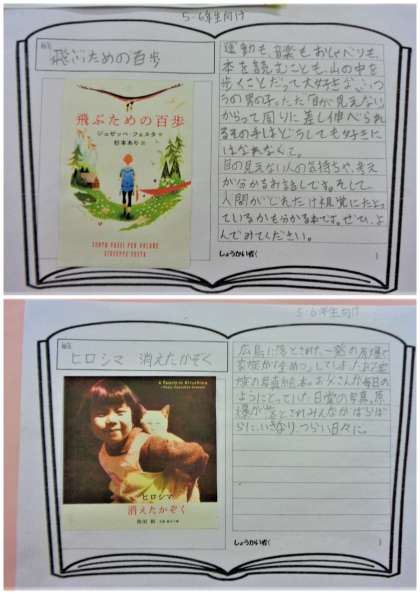 5・6年生向け
飛ぶための百歩
飛ぶための百歩
ジュゼッペ・フェスタ 作
杉本あり 訳
CENTO PASSI PER VOLARE
GIUSEPPE FESTA
運動も、音楽も、おしゃべりも、
本を読むことも、山の中を
歩くことだって大好きな、いつ
うの男の子。ただ「目が見えない」
からって周りに差し伸べられ
るその手はどうしても好きに
はなれなくて。
目の見えない人の気持ちや、考え
が分かるお話しです。そして、
人間がどれだけ視覚にたよっ
ているかも分かる本です。ぜひ、よ
んでみてください。
しょうかい者く
5・6年生向け
ヒロシマ 消えたかぞく
ヒロシマ
消えたかぞく
広島に落とされた一発の原爆で
家族が全めつしてしまったある家
族の写真絵本。お父さんが毎日の
ようにとっていた日常の写真。原
爆が落とされみんながばらばら
に、いきなり、つらい日々に。
しょうかい者く